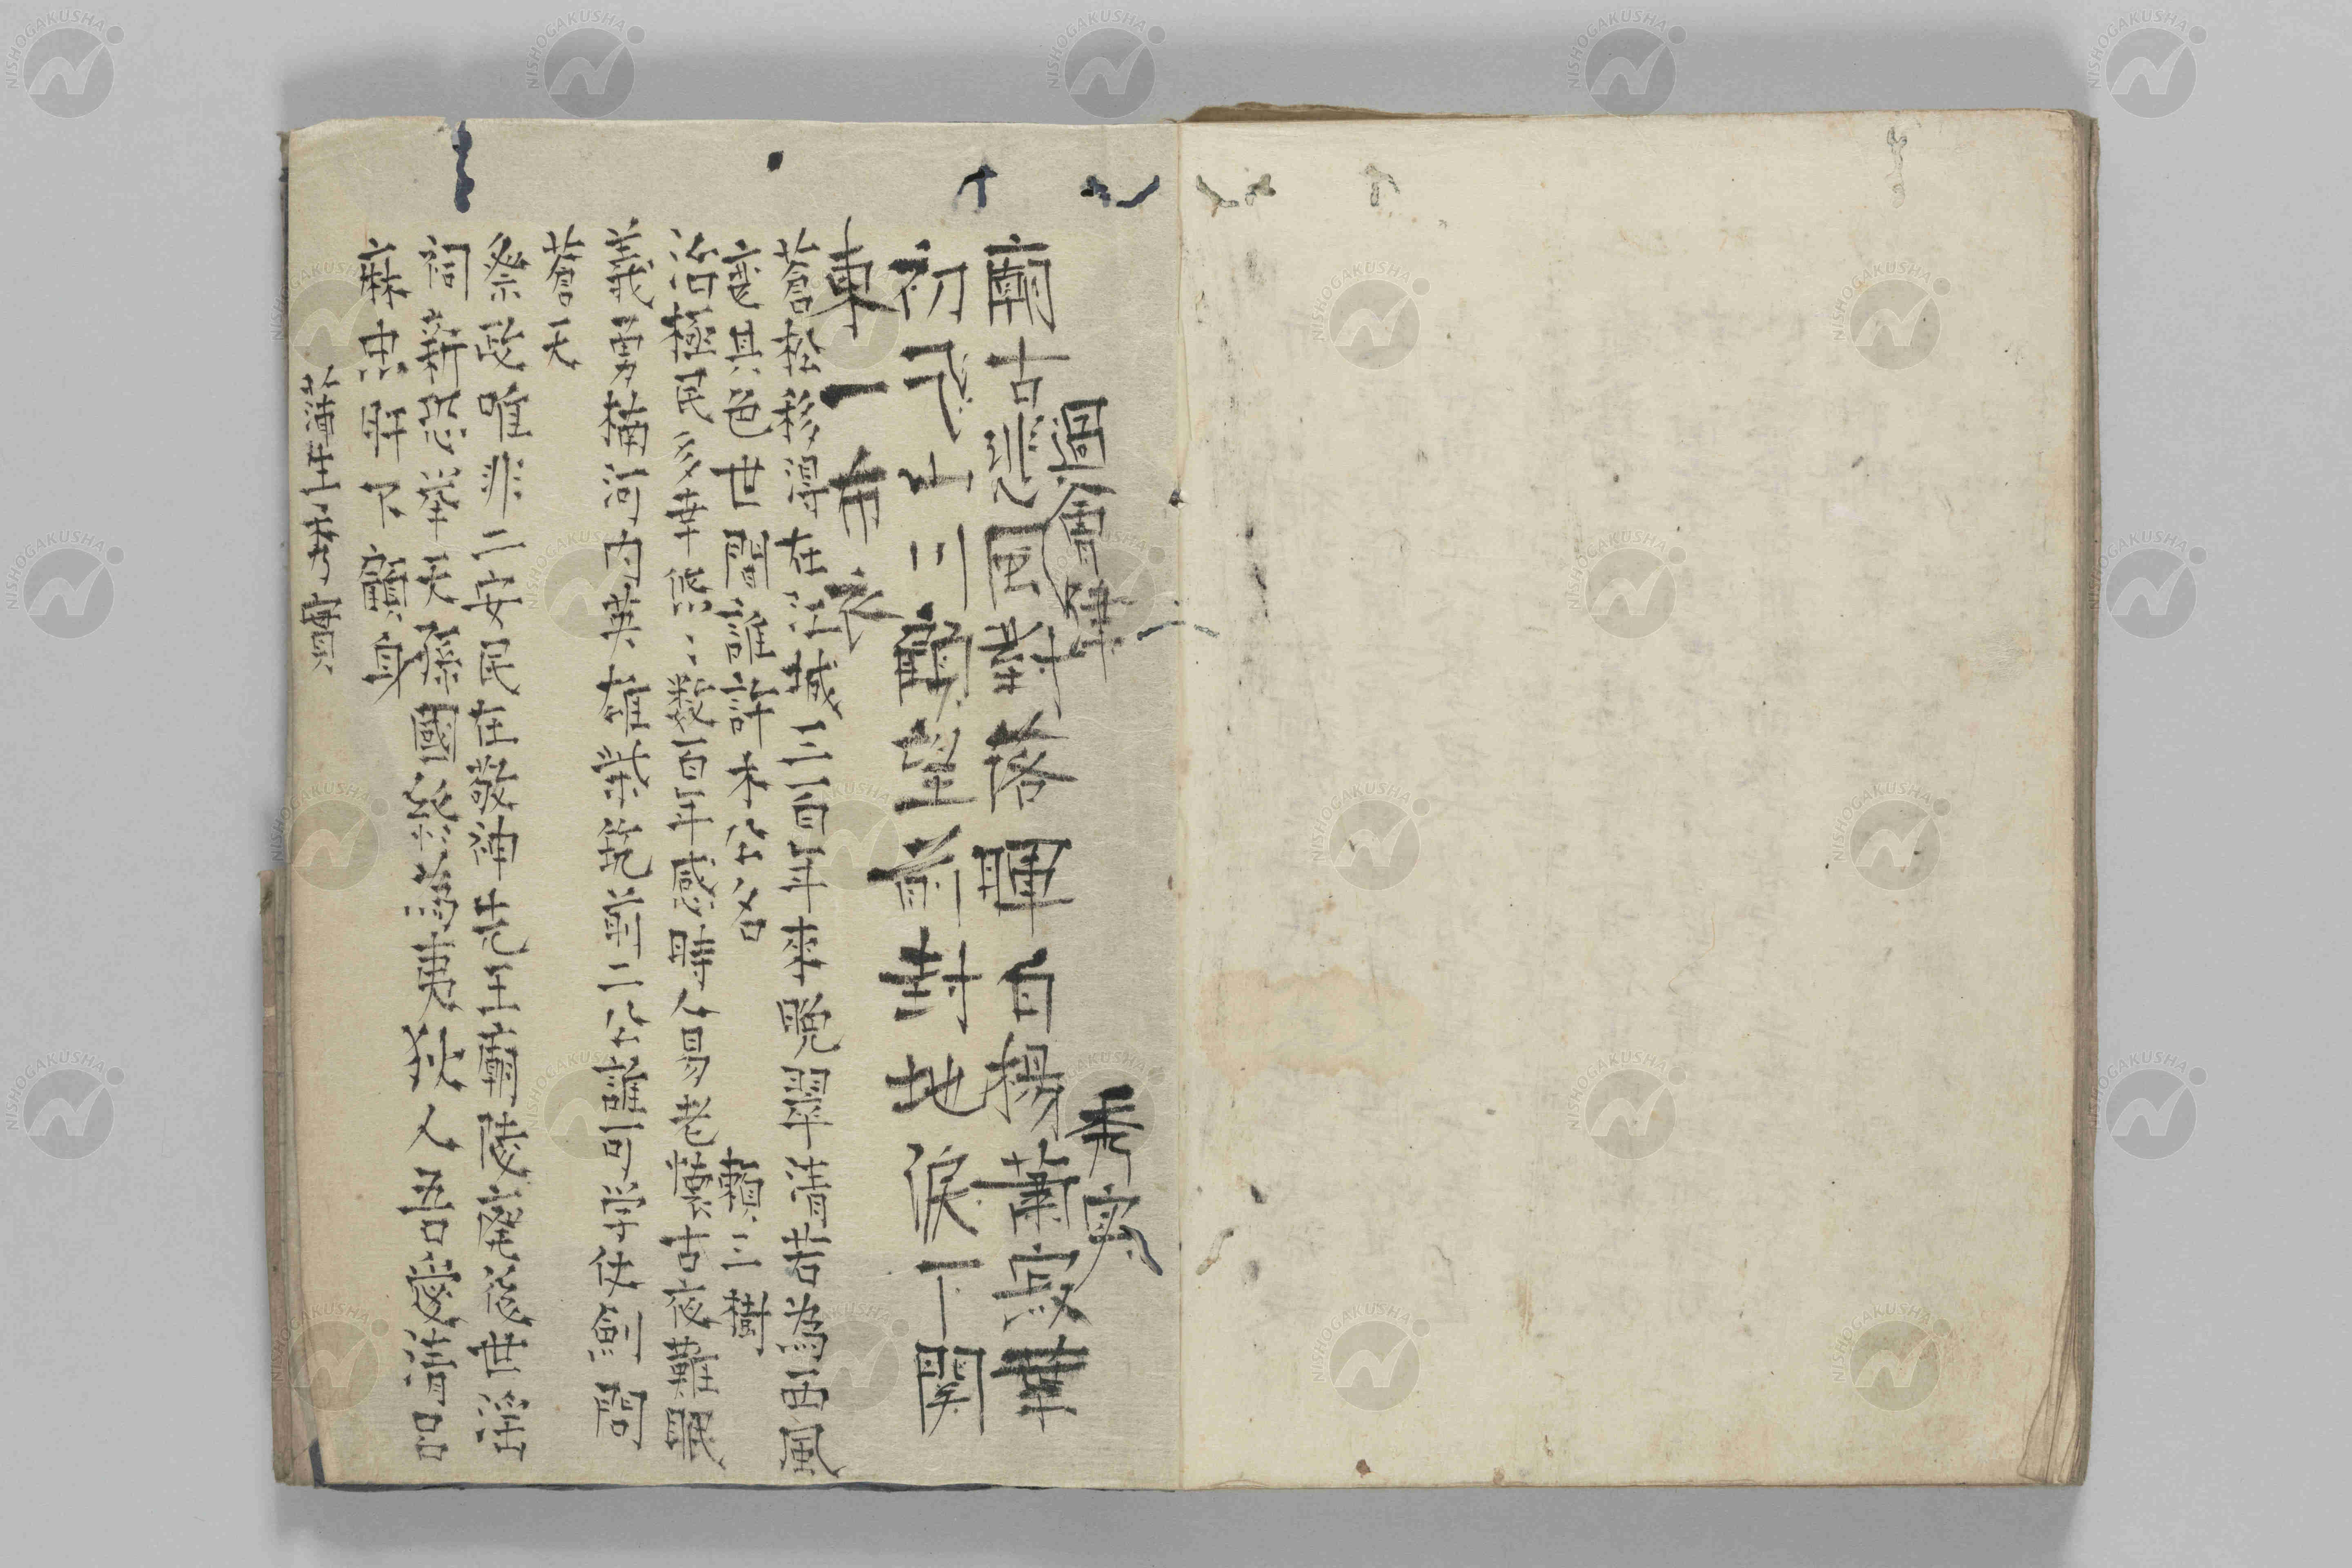 過會津　秀実
廟古悲風對落暉白楊蕭寂葉
初飛山川顧望前封地涙下関
東一布衣
蒼松移得在江城三百年來晩翠清若為西風
変其色世間誰許木公名　頼三樹
治極民多幸熙〻数百年感時人易老懐古夜難眠
義勇楠河内英雄柴筑前二公誰可学仗剣問
蒼天
祭政唯非二安民在敬神先王廟陵廃後世淫
祠新恐挙天孫國終為夷狄人吾愛清呂
麻忠肝不顧身
蒲生秀實
NISHOGAKUSHA